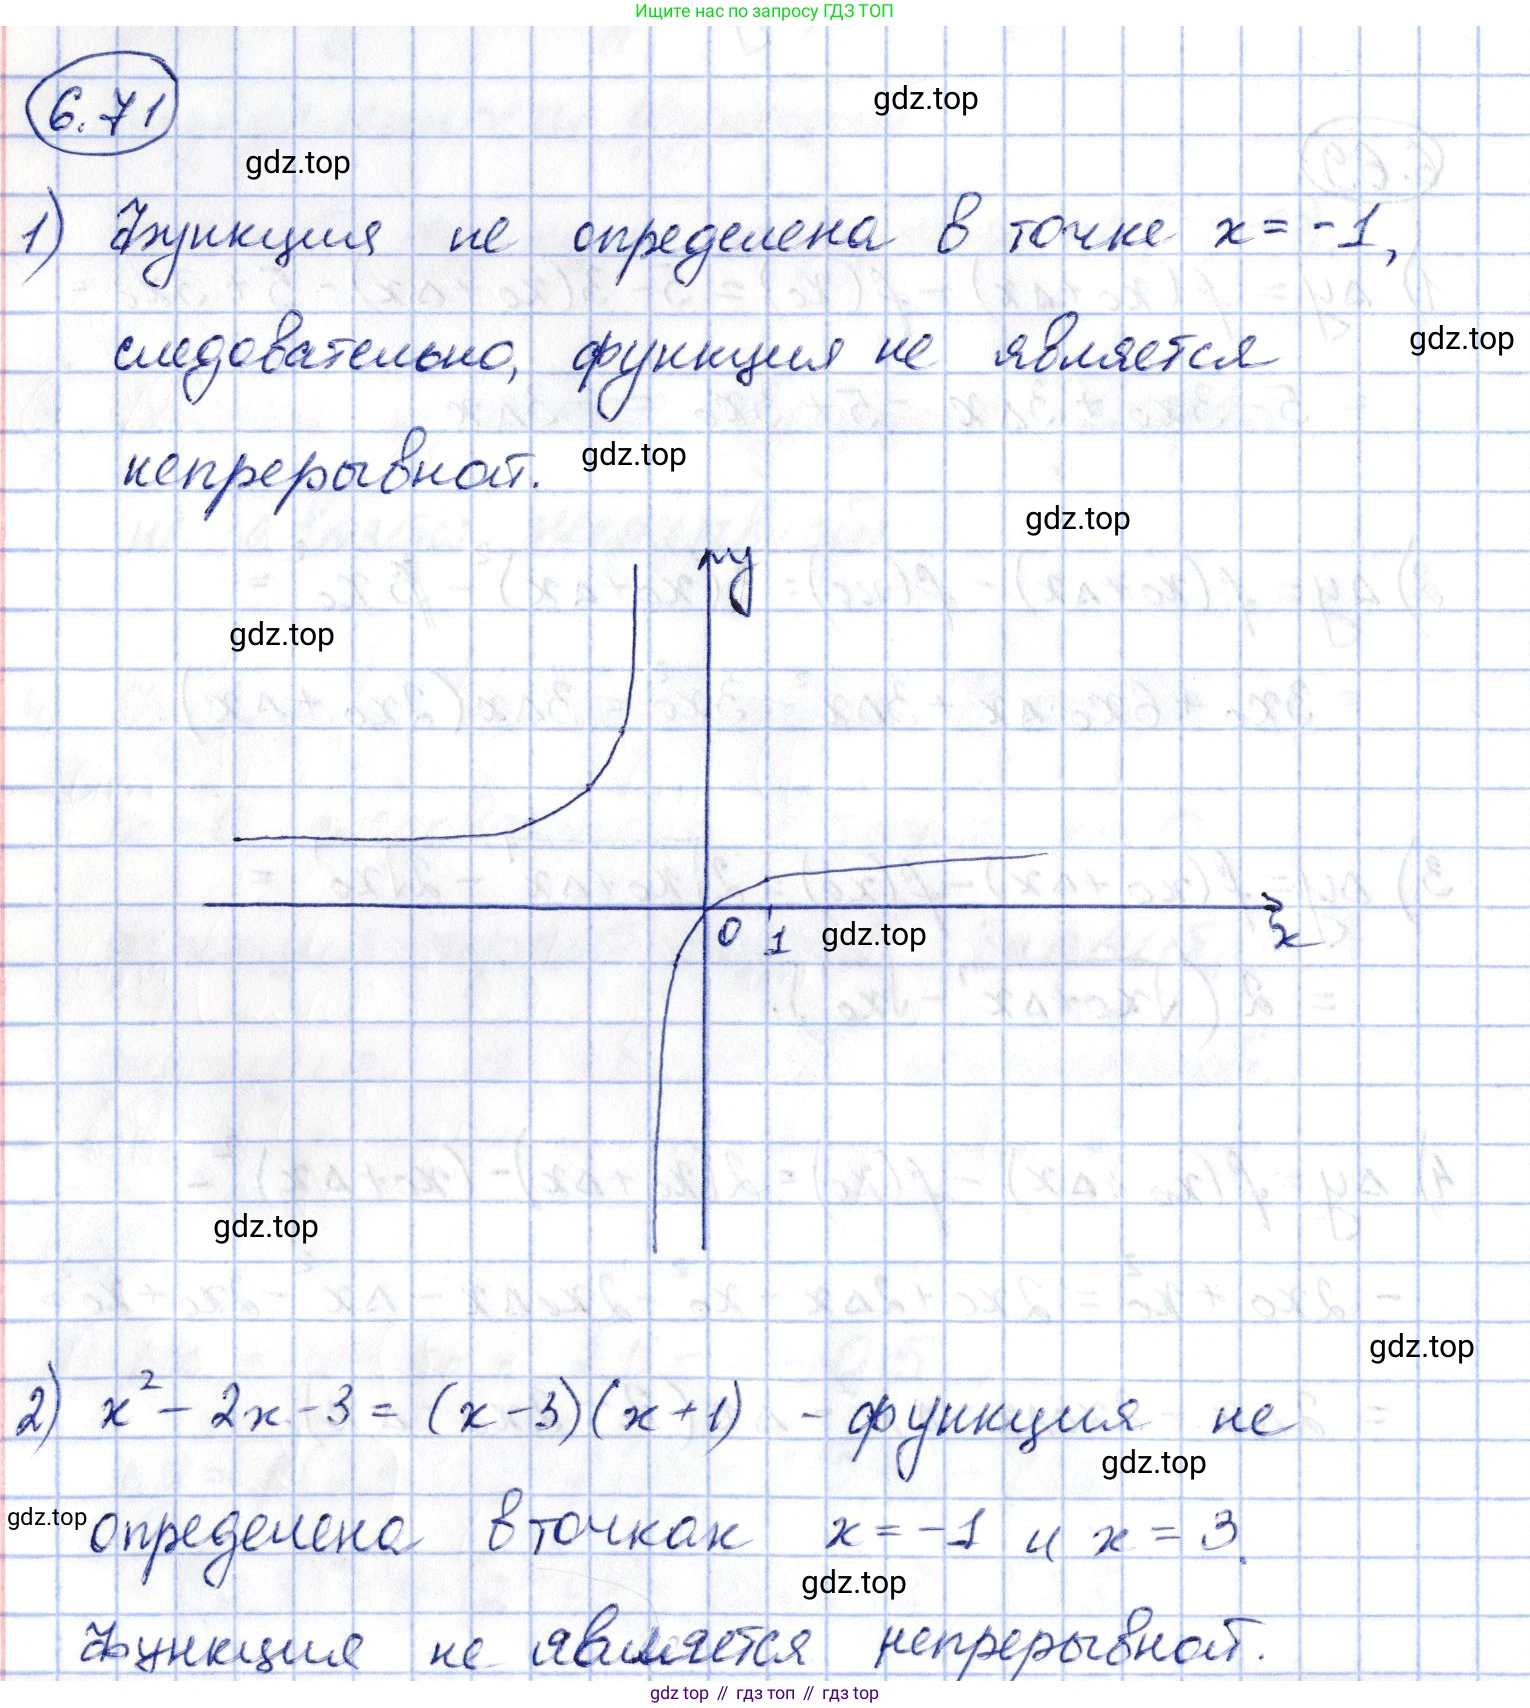 Ищите нас по запросу ГДЗ ТОП
6.71
gdz.top
gdz.top
1) Функция не определена в точке x = -1,
следовательно, функция не является
gdz.top
непрерывной.
gdz.top
gdz.top
y
gdz.top
0 1
gdz.top
x
gdz.top
gdz.top
2) x² - 2x - 3 = (x - 3)(x + 1) - функция не
gdz.top
gdz.top
определена в точках x = -1 и x = 3.
gdz.top
Функция не является непрерывной.
gdz top // гдз топ // gdz top